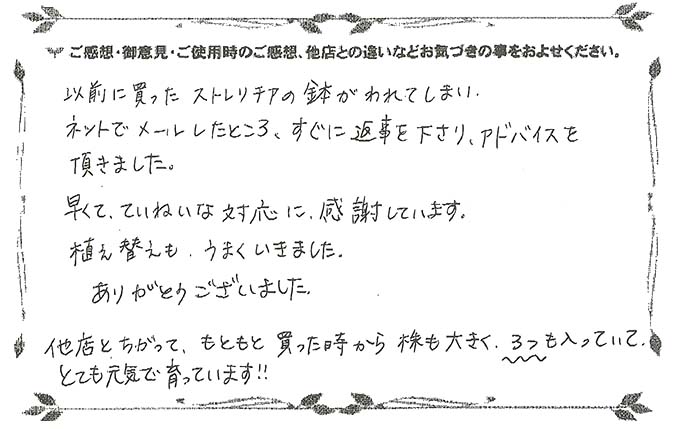 ご感想・御意見・ご使用時のご感想、他店との違いなどお気づきの事をおよせください。
以前に買ったストレリチアの鉢がわれてしまい、
ネットでメールしたところ、すぐに返事を下さり、アドバイスを
頂きました。
早くて、ていねいな対応に、感謝しています。
植え替えも、うまくいきました。
ありがとうございました。
他店とちがって、もともと買った時から株も大きく、3つも入っていて、
とても元気で育っています!!